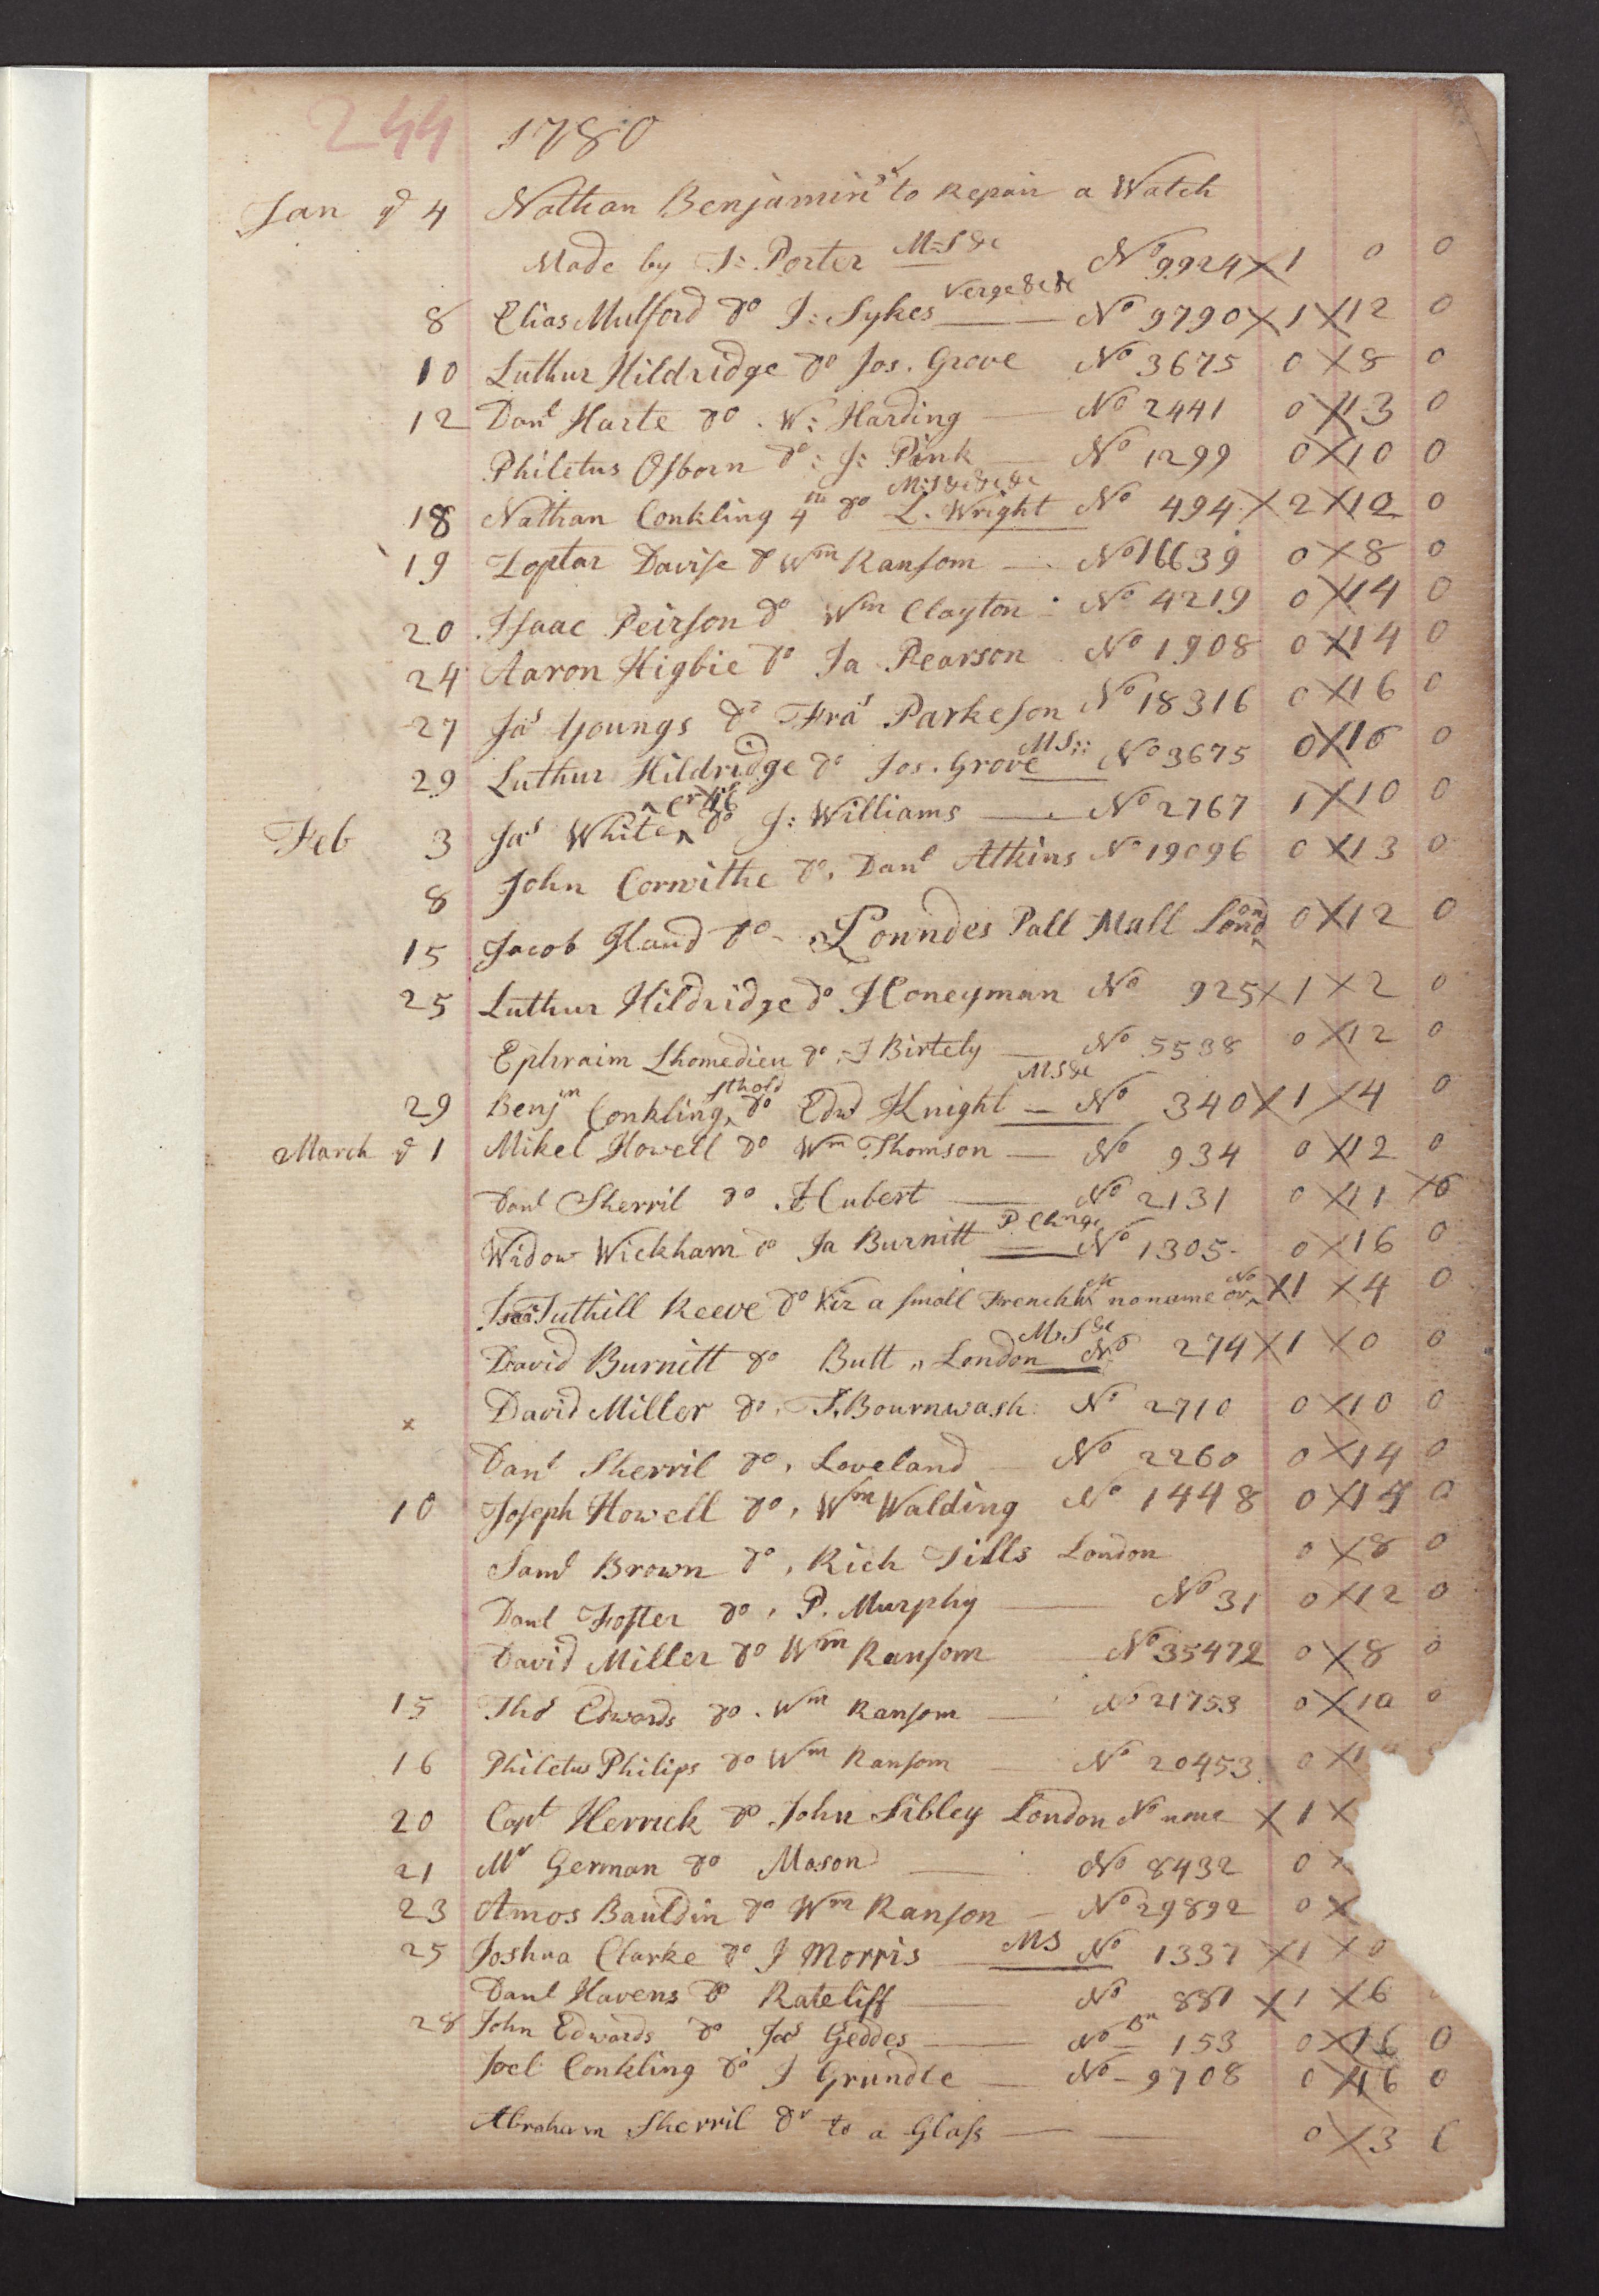 244 1780
Jan yᵉ 4 Nathan Benjamin Dʳ to Repair a Watch
Made by J: Porter M=S &c Nº 9924 X 1 0 0
8 Elias Mulford Dº J: Sykes Verge &c &c Nº 9790 X 1 X 12 0
10 Luthur Hildridge Dº Jos. Grove Nº 3675 0 X 8 0
12 Danˡ Harte Dº W: Harding Nº 2441 0 X 13 0
Philetus Osborn Dº: J: Pink Nº 1299 0 X 10 0
18 Nathan Conkling 4ᵗʰ Dº L. Wright M:S &c &c &c Nº 494 X 2 X 10 0
19 Loptar Davise Dº Wᵐ Ransom Nº 16639 0 X 8 0
20 Isaac Peirson Dº Wᵐ Clayton Nº 4219 0 X 14 0
24 Aaron Higbie Dº Ja Pearson Nº 1908 0 X 14 0
27 Jaˢ Youngs Dº Fraˢ Parkeson Nº 18316 0 X 16 0
29 Luthur Hildridge Dº Jos. Grove MS:: Nº 3675 0 X 16 0
Feb 3 Jaˢ White Dº J: Williams Nº 2767 1 X 10 0
8 John Corwithe Dº, Danˡ Atkins Nº 19096 0 X 13 0
15 Jacob Hand Dº Lowndes Pall Mall Lond 0 X 12 0
25 Luthur Hildridge Dº Honeyman Nº 925 X 1 X 2 0
Ephraim Lhomedieu Dº J Birtely Nº 5538 0 X 12 0
29 Benjⁿ Conkling Sthold Dº Edw Knight MS &c Nº 340 X 1 X 4 0
March yᵉ 1 Mikel Howell Dº Wᵐ Thomson Nº 934 0 X 12 0
Danl Sherril Dº Hubert Nº 2131 0 X 11 X 6
Widow Wickham Dº Ja Burnitt P. Chnge Nº 1305 0 X 16 0
Tuthill Reeve Dº Viz a small French no name or No X 1 X 4 0
David Burnitt Dº Butt „ London M:S &c Nº 274 X 1 X 0 0
x David Miller Dº, J. Bournwash Nº 2710 0 X 10 0
Danˡ Sherril Dº, Loveland Nº 2260 0 X 14 0
10 Joseph Howell Dº, Wᵐ Walding Nº 1448 0 X 14 0
Samˡ Brown Dº, Rich Tills London 0 X 8 0
Danl Foster Dº, P. Murphy Nº 31 0 X 12 0
David Miller Dº Wᵐ Ransom Nº 35472 0 X 8 0
15 Thoˢ Edwards Dº. Wᵐ Ransom Nº 21753 0 X 10 0
16 Philetus Philips Dº Wᵐ Ransom Nº 20453 0 X 1
20 Capᵗ Herrick Dº John Sibley London Nº none X 1 X
21 Mʳ German Dº Mason Nº 8432 0 X
23 Amos Bauldin Dº Wᵐ Ranson Nº 29892 0 X
25 Joshua Clarke Dº J Morris MS Nº 1337 X 1 X 0
Danl Havens Dº Rateliff Nº 881 X 1 X 6
28 John Edwards Dº Jaˢ Geddes Nº 153 0 X 16 0
Joel Conkling Dº J Grundle Nº 9708 0 X 16 0
Abraham Sherril Dʳ to a Glass 0 X 3 6